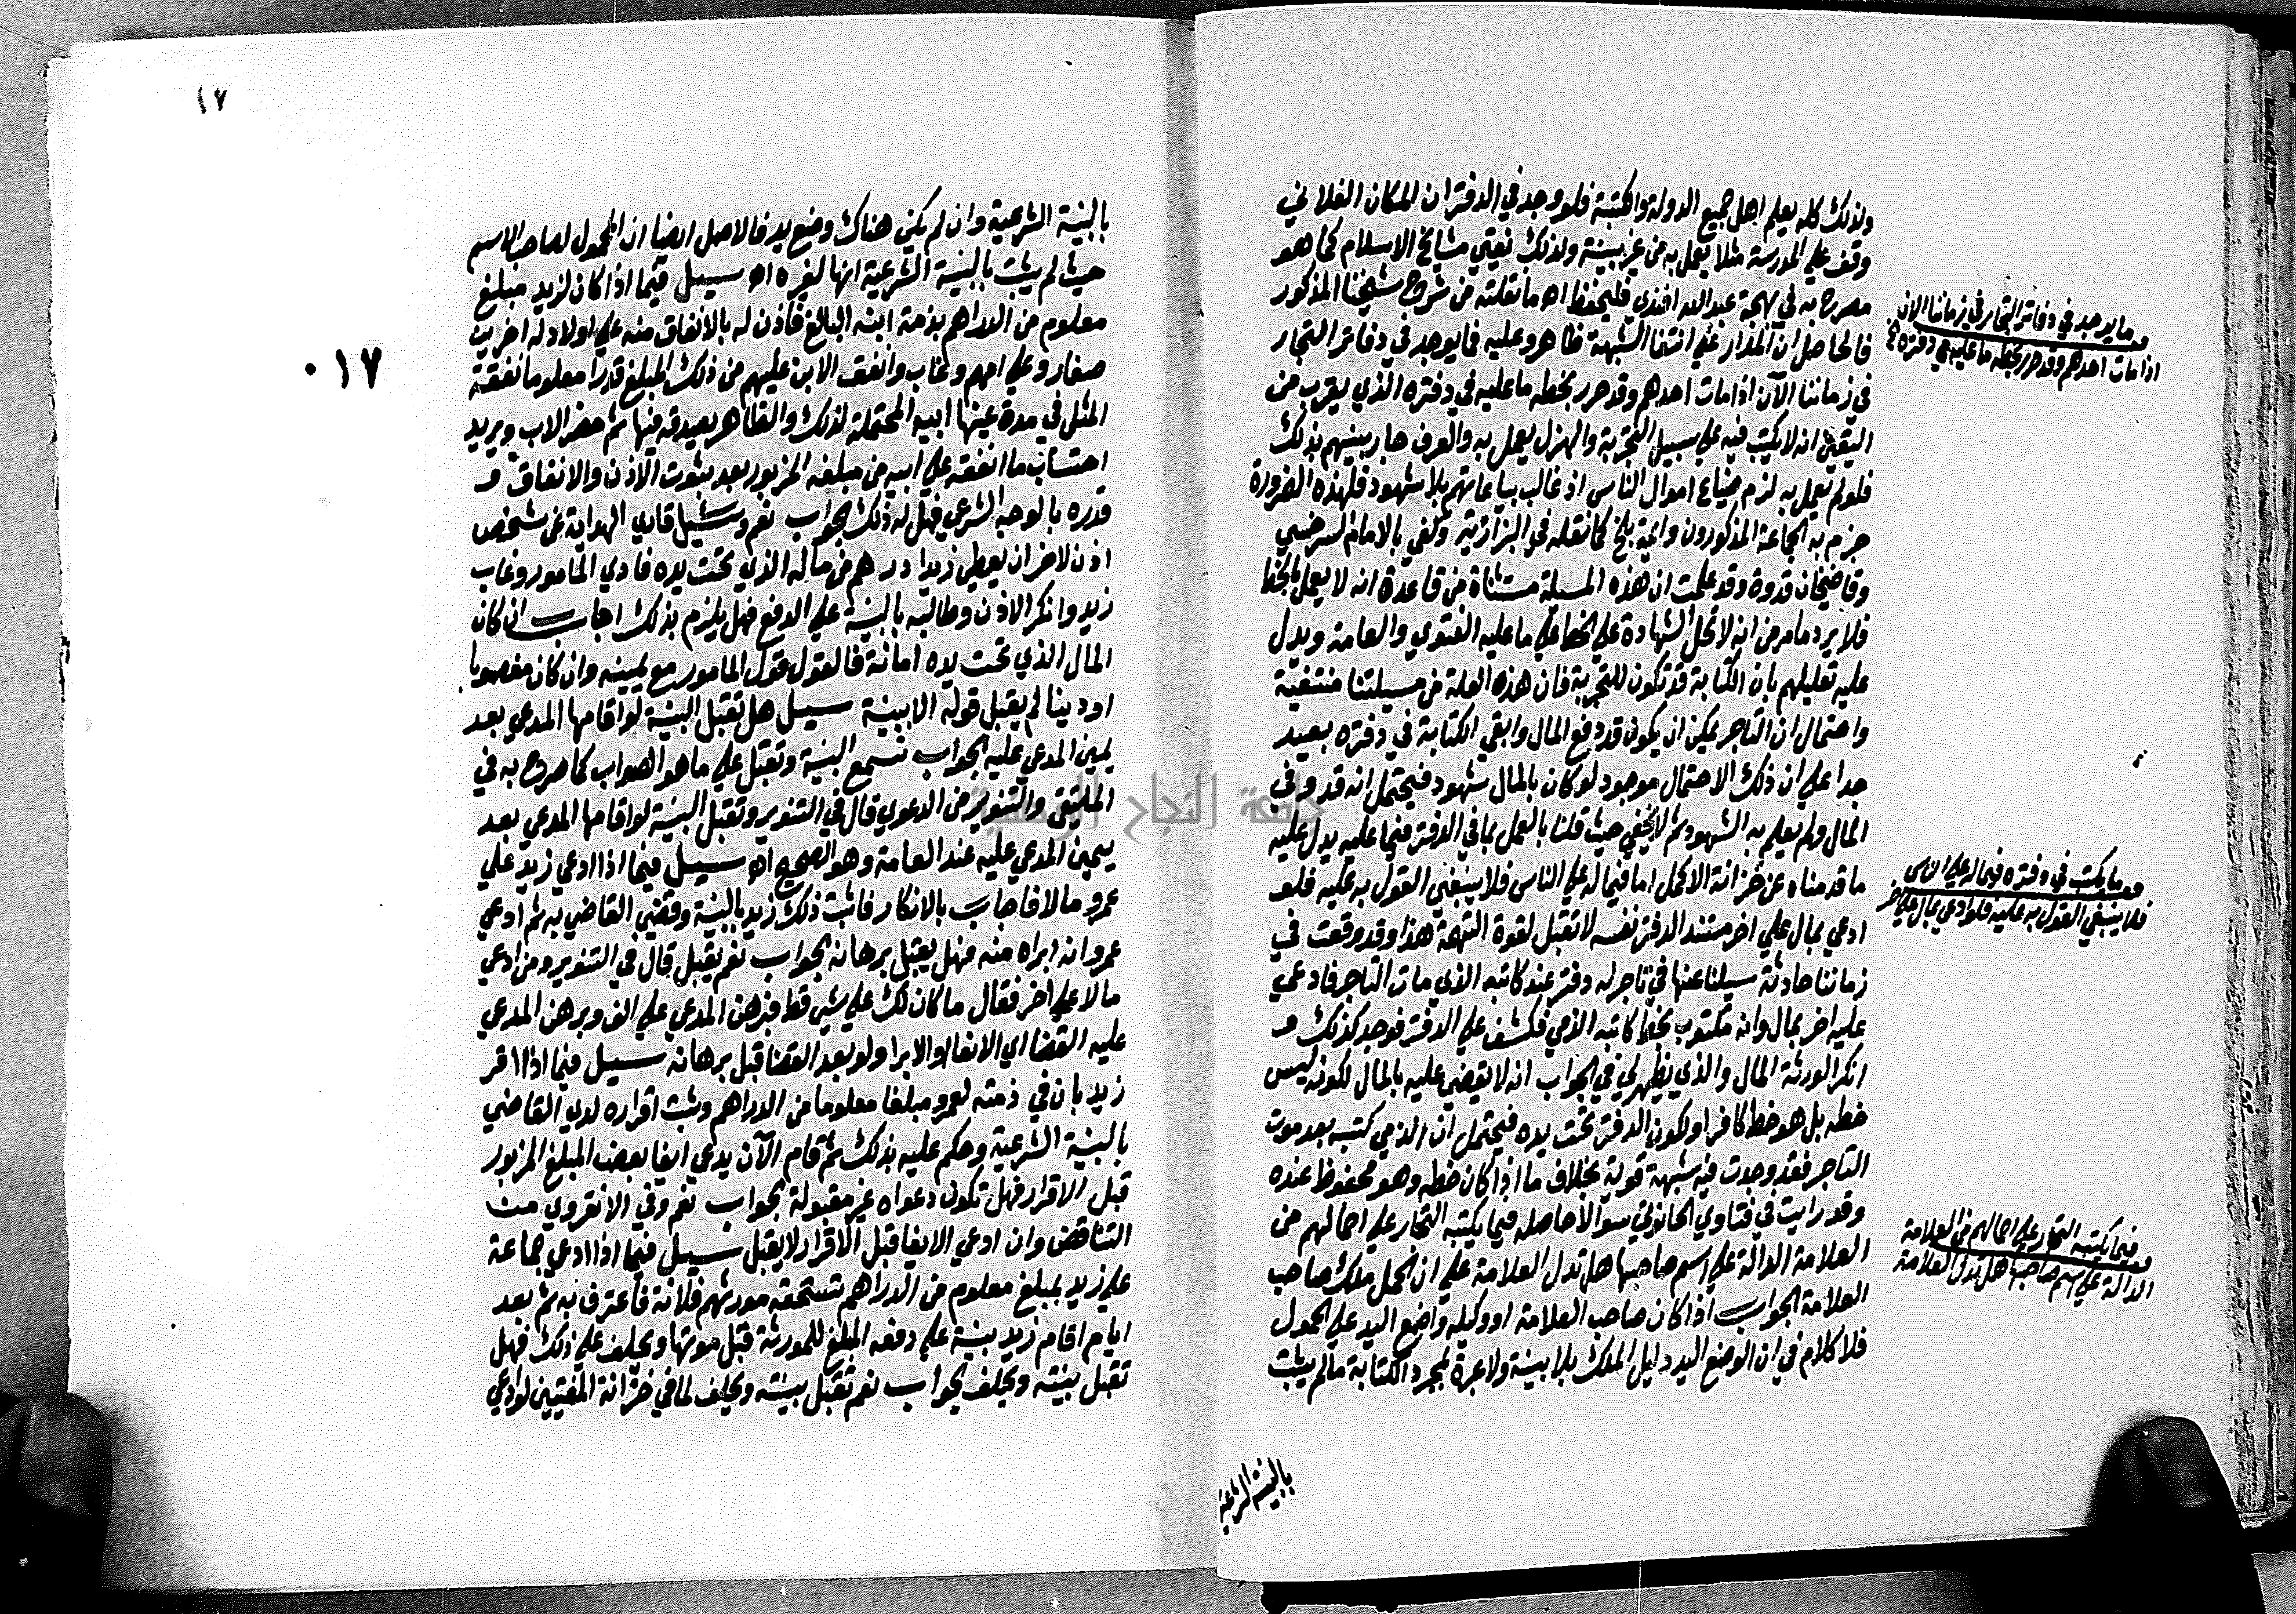 وذلك كله يعلم اهل جميع الدولة والكتبة فلو وجد في الدفتر ان المكان الفلاني
وقف علي المدرسة مثلا يعمل به من غير بينة ولذلك تفتي مشايخ الاسلام كما هو
مصرح به في بهجة عبد الله افندي فليحفظ اه ما نقلته من شرح شيخنا المذكور
فالحاصل ان المدار علي انتفا الشبهة ظاهرا وعليه فما يوجد في دفاتر التجار
في زماننا الآن اذا مات احدهم وقد حرر بخطه ما عليه في دفتره الذي يقرب من
اليقين انه لا يكتب فيه علي سبيل التجربة والهزل يعمل به والعرف جار بينهم بذلك
فلو لم يعمل به لزم ضياع اموال الناس اذ غالب بياعاتهم بلا شهود فلهذه الضرورة
جزم به الجماعة المذكورون وائمة بلخ كما نقله في البزازية وكفي بالامام السرخسي
وقاضيخان قدوة وقد علمت ان هذه المسيلة مستثناة من قاعدة انه لا يعمل بالخط
فلا يرد ما مر من انه لا تحل الشهادة علي الخط علي ما عليه الفتوي والعامة ويدل
عليه تعليلهم بان الكتابة قد تكون للتجربة فان هذه العلة من مسيلتنا منتفية
واحتمال ان التاجر يمكن ان يكون قد دفع المال وابقي الكتابة في دفتره بعيد
جدا علي ان ذلك الاحتمال موجود لو كان بالمال شهود فيحتمل انه قد وفي
المال ولم يعلم به الشهود ثم لا يخفي حيث قلنا بالعمل بما في الدفتر فيما عليه يدل عليه
ما قدمناه عن خزانة الاكمل اما فيما له علي الناس فلا ينبغي القول به عليه فلو
ادعي بمال علي اخر مستند الدفتر نفسه لا تقبل لقوة التهمة هذا وقد وقعت في
زماننا حادثة سيلنا عنها في تاجر له دفتر عند كاتبه الذي مات التاجر فادعي
عليه اخر بمال وانه مكتوب بخط كاتبه الذمي فكشف علي الدفتر فوجد كذلك و
انكر الورثة المال والذي يظهر لي في الجواب انه لا يقضي عليه بالمال لكونه ليس
خطه بل هو خط كافر او لكون الدفتر تحت يده فيحتمل ان الذمي كتبه بعد موت
التاجر فقد وجدت فيه شبهة قوية بخلاف ما اذا كان خطه وهو محفوظ عنده
وقد رايت في فتاوي الحانوتي سوالا حاصله فيما يكتبه التجار علي احمالهم من
العلامة الدالة علي اسم صاحبها هل تدل العلامة علي ان الحمل ملك صاحب
العلامة الجواب اذا كان صاحب العلامة او وكيله واضع اليد علي الحمول
فلا كلام في ان الوضع اليد دليل الملك بلا بينة ولا عبرة لمجرد الكتابة ما لم يثبت
بالبينة الشرعية
ما يوجد في دفاتر التجار في زماننا الان
اذا مات احدهم وقد حرر بخطه ما عليه في دفتره
ما يكتب في دفتره فيما له علي الناس
فلا ينبغي القول به عليه فلو ادعي بمال علي اخر
فيما يكتبه التجار علي احمالهم من العلامة
الدالة علي اسم صاحبها هل تدل العلامة
١٧
٠١٧
بالبينة الشرعية وان لم يكن هناك وضع يد فالاصل ايضا ان المحمول لصاحب الاسم
حيث لم يثبت بالبينة الشرعية انها لغيره اه سيل فيما اذا كان لزيد مبلغ
معلوم من الدراهم بذمة ابنه البالغ فاذن له بالانفاق منه علي اولاد له اخرين
صغار وعلي امهم وغاب وانفق الابن عليهم من ذلك المبلغ قدرا معلوما نفقة
المثل في مدة عينها ابيه المحتملة لذلك والظاهر يصدقه فيها ثم حضر الاب ويريد
احتساب ما انفقه علي ابيه من مبلغه المزبور بعد ثبوت الاذن والانفاق و
قدره بالوجه الشرعي فهل له ذلك الجواب نعم وسيل قاري الهداية عن شخص
اذن لاخر ان يعطي زيدا درهم من ماله الذي تحت يده فادي المامور وغاب
زيد وانكر الاذن وطالبه بالبينة علي الدفع فهل يلزم بذلك اجاب ان كان
المال الذي تحت يده امانة فالقول قول المامور مع يمينه وان كان مغصوبا
او دينا لم يقبل قوله الا ببينة سيل هل تقبل البينة لو اقامها المدعي بعد
يمين المدعي عليه الجواب تسمع البينة وتقبل علي ما هو الصواب كما صرح به في
الملتقي والتنوير من الدعوي قال في التنوير وتقبل البينة لو اقامها المدعي بعد
يمين المدعي عليه عند العامة وهو الصحيح اه سيل فيما اذا ادعي زيد علي
عمرو مالا فاجاب بالانكار فاثبت ذلك زيد بالبينة وقضي القاضي به ثم ادعي
عمرو انه ابراه منه فهل يقبل برهانه الجواب نعم يقبل قال في التنوير ومن ادعي
مالا علي اخر فقال ما كان لك علي شي قط فبرهن المدعي علي الف وبرهن المدعي
عليه القضا اي الايفا او الابرا ولو بعد القضا قبل برهانه سيل فيما اذا اقر
زيد بان في ذمته لعمرو مبلغا معلوما من الدراهم وثبت اقراره لدي القاضي
بالبينة الشرعية وحكم عليه بذلك ثم قام الآن يدعي ايفا بعض المبلغ المزبور
قبل الاقرار فهل تكون دعواه غير مقبولة الجواب نعم وفي الانقروي من
التناقض وان ادعي الايفا قبل الاقرار لا يقبل سيل فيما اذا ادعي جماعة
علي زيد بمبلغ معلوم من الدراهم تستحقه مورثتهم فلانة فاعترف به ثم بعد
ايام اقام زيد بينة علي دفعه المبلغ للمورثة قبل موتها ويحلف علي ذلك فهل
تقبل بينته ويحلف الجواب نعم تقبل بينته ويحلف لما في خزانة المفتيين لو ادعي
جامعة النجاح الوطنية